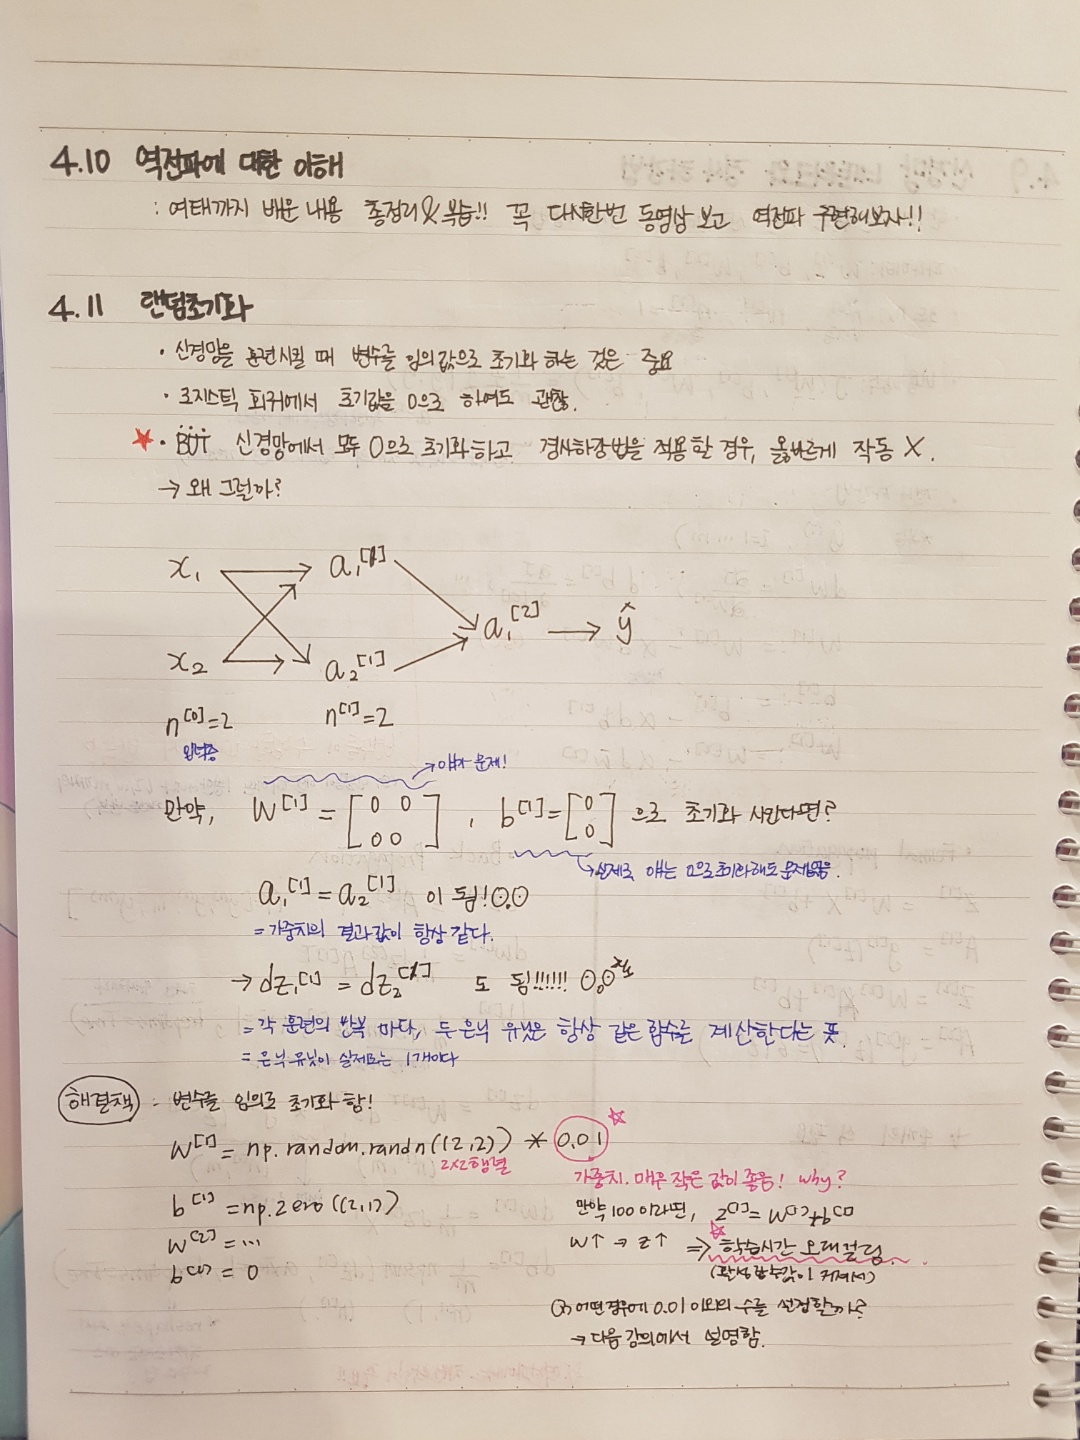 4.10 역전파에 대한 이해
: 여태까지 배운 내용 총정리&복습!! 꼭 다시한번 동영상 보고 역전파 구현해보자!!
4.11 랜덤초기화
· 신경망을 훈련시킬 때 변수를 임의값으로 초기화 하는 것은 중요
· 로지스틱 회귀에서 초기값을 0으로 하여도 괜찮.
★· BUT 신경망에서 모두 0으로 초기화하고 경사하강법을 적용할 경우, 옳바르게 작동 X.
→ 왜 그럴까?
x₁ a₁[1]
a₁[2] → ŷ
x₂ a₂[1]
n[0]=2 n[1]=2
입력층
→얘가 문제!
만약, W[1] = [0 0 0 0] , b[1]=[0 0] 으로 초기화 시킨다면?
→실제로 얘는 0으로 초기화해도 문제없음.
a₁[1] = a₂[1] 이 됨! ⊙.⊙
= 가중치의 결과값이 항상 같다.
→ dz₁[1] = dz₂[1] 도 됨!!!!!! ⊙.⊙
= 각 훈련의 반복 마다, 두 은닉 유닛은 항상 같은 함수를 계산한다는 뜻.
= 은닉 유닛이 실제로는 1개이다
해결책 : 변수를 임의로 초기화 함!
W[1] = np.random.randn((2,2)) * 0.01 ☆
2x2행렬
가중치. 매우 작은 값이 좋음! why?
b[1] = np.zero((2,1))
만약 100 이라면, z[1]=W[1]x+b[1]
W[2] = ...
W↑ → z↑ ⇒ ☆ 학습시간 오래걸림.
b[2] = 0
(활성함수값이 커져서)
(?) 어떤 경우에 0.01 이외의 수를 선정할까?
→ 다음 강의에서 설명함.